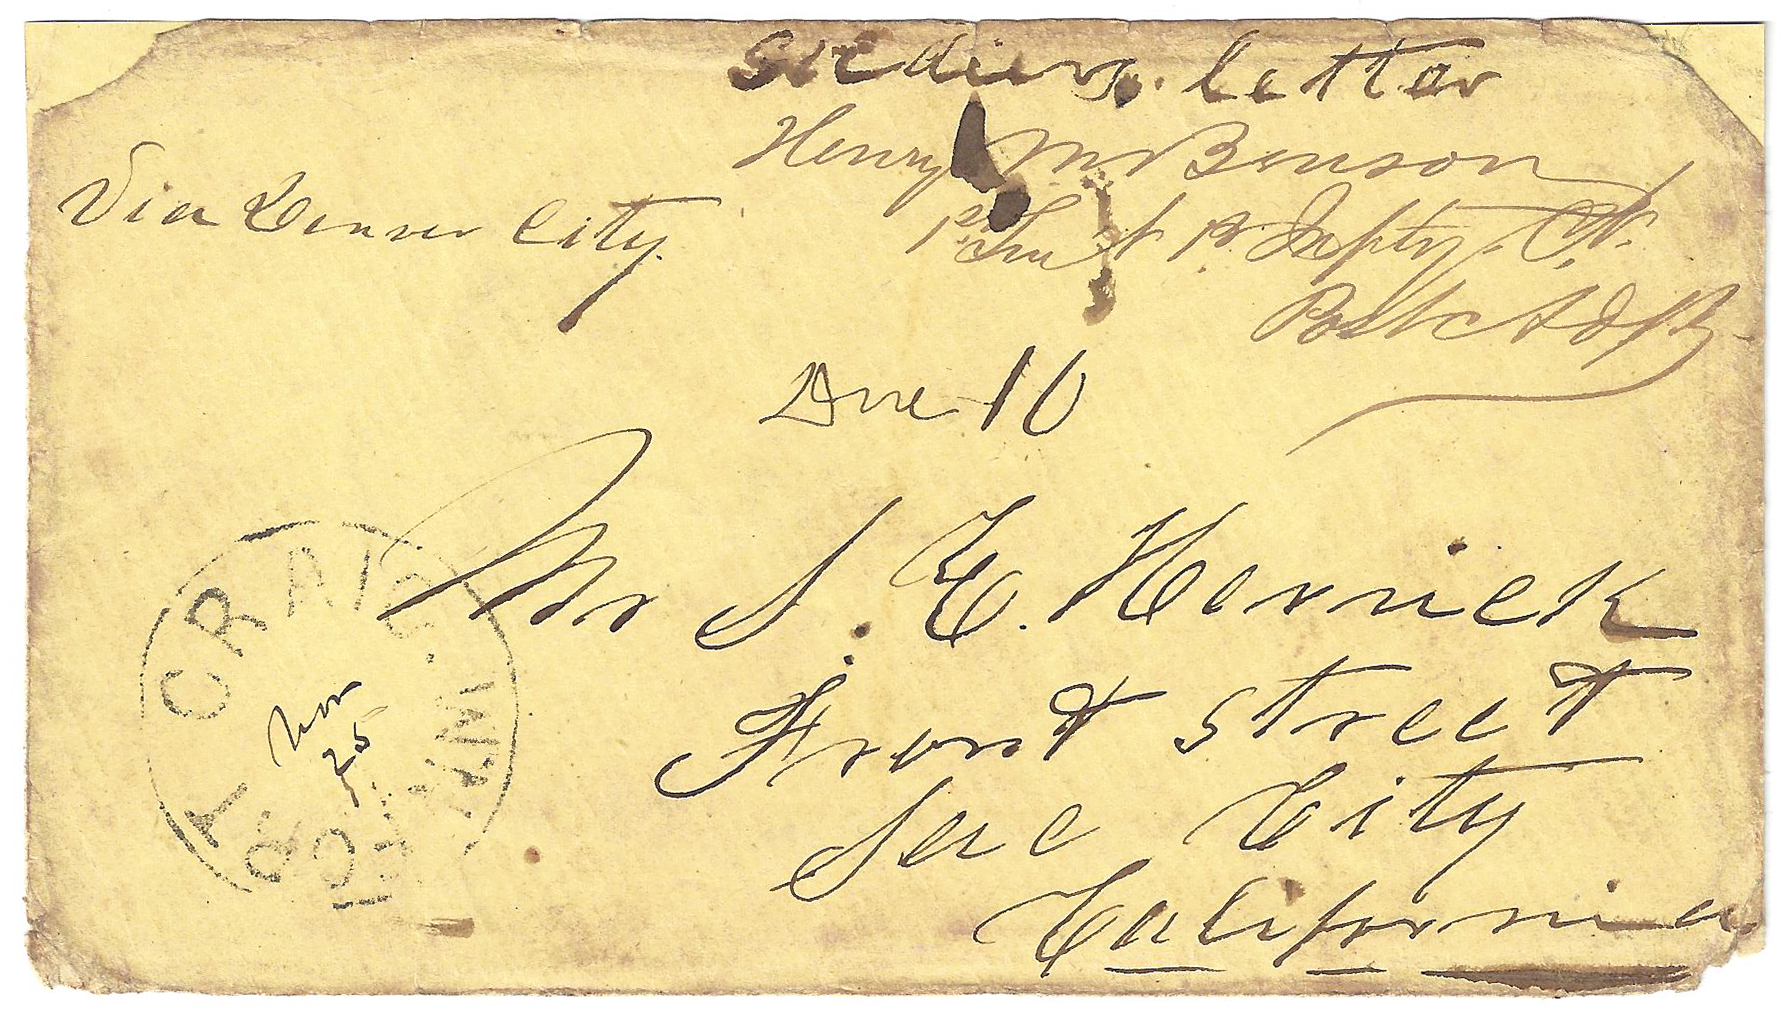 Soldiers. letter
Henry M Benson
1st Lieut 1st Infty C.V.
Post Adjt
Via Denver City.
Due 10
Mr S. E. Herrick
Front Street
Sac City
California
FT CRAIG. N.M.
Nov
25